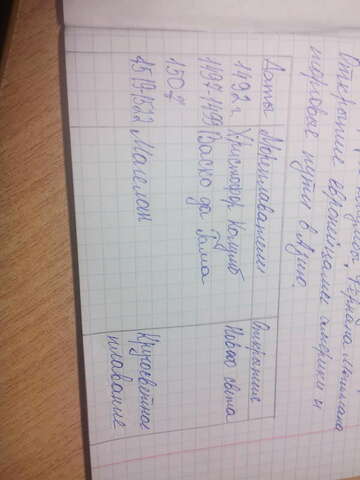 Магиллана
Открытие европейцами америки и
пути в Азию.
Даты Мореплаватели Открытия
1492г. Христофор Колумб Нового света
1497-1499 Васко да Гама
1507
1519-1522 Магелан Кругосветное
плавание